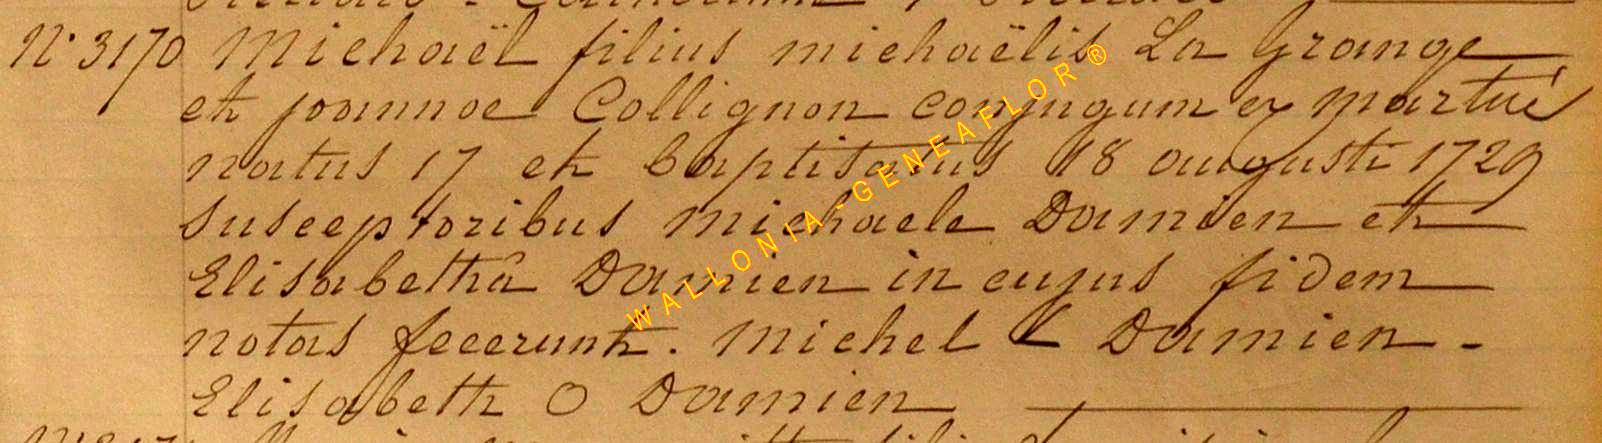 N° 3170 Michaël filius michaëlis La Grange
et joannoe Collignon conjugum ex martue
natus 17 et baptisatus 18 augusti 1729
susceptoribus michaele Damien et
Elisabethâ Damien in cujus fidem
notas fecerunt. Michel L Damien -
Elisabeth O Damien
WALLONIA - GENEAFLOR®